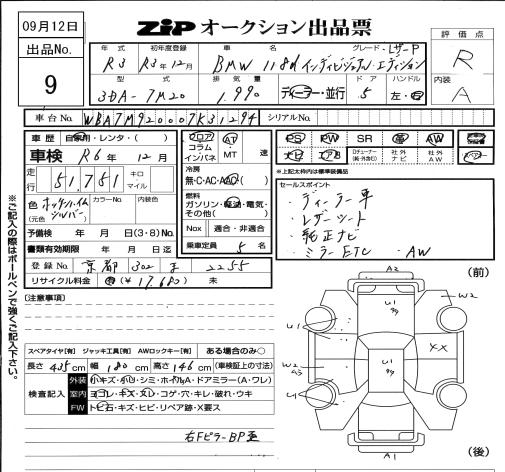 09月12日
ZIP オークション出品票
出品No.
9
評価点
R
内装
A
年式 初年度登録 車名 グレード・レザーP
R3 R3年12月 BMW 118d インディビジュアル・エディション
型式 排気量 ドア ハンドル
3DA-7M20 1,990 ディーラー・並行 5 左・右
車台No. WBA7M920007K31294 シリアルNo.
車歴 自家用・レンタ・( )
車検 R6年 12月
走行 51,751 キロ マイル
色 (元色) シルバー カラーNo. 内装色
予備検 年 月 日(3・8)No.
書類有効期限 年 月 日迄
登録No. 京都 302 2255
リサイクル料金 (¥17,680) 未
フロア コラム インパネ
AT・MT 速
冷房
無・C・AC・AAC
燃料
ガソリン・軽油・電気・その他( )
Nox 適合・非適合
乗車定員 5 名
PS PW SR 革 AW
ナビ エアB Dチューナー(純・社外) 社外ナビ 社外AW
*上記太枠内は標準装備品
セールスポイント
・ディーラー車
・レザーシート
・純正ナビ
・ミラーETC ・AW
[注意事項]
スペアタイヤ[有] ジャッキ工具[有] AWロックキー[有] ある場合のみ○
長さ 435cm 幅 180cm 高さ 146cm (車検証上の寸法)
検査記入
外装 小キズ・小凹・シミ・ホイルA・ドアミラー(A・ワレ)
室内 ヨゴレ・キズ・スレ・コゲ・穴・キレ・破れ・ウキ
FW トビ石・キズ・ヒビ・リペア跡・X要ス
右FピラーBP歪
※ご記入の際はボールペンで強くご記入下さい。
(前)
A2
U1
W2
U1
XX
W2
U1
A1
(後)